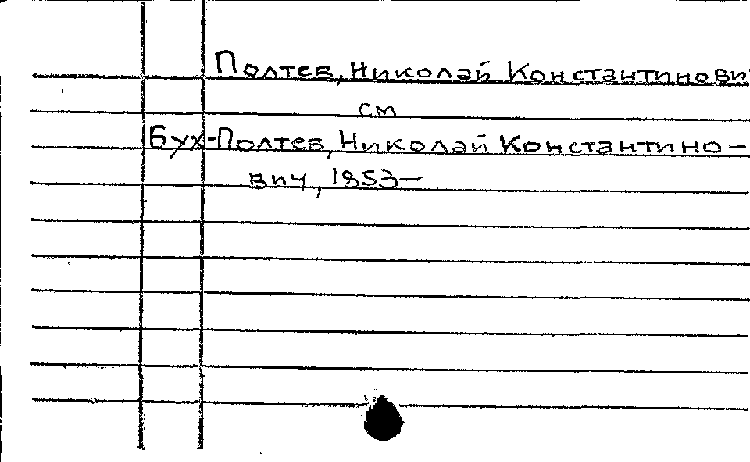 Полтев, Николай Константинович
см
Бух-Полтев, Николай Константино-
вич, 1853-